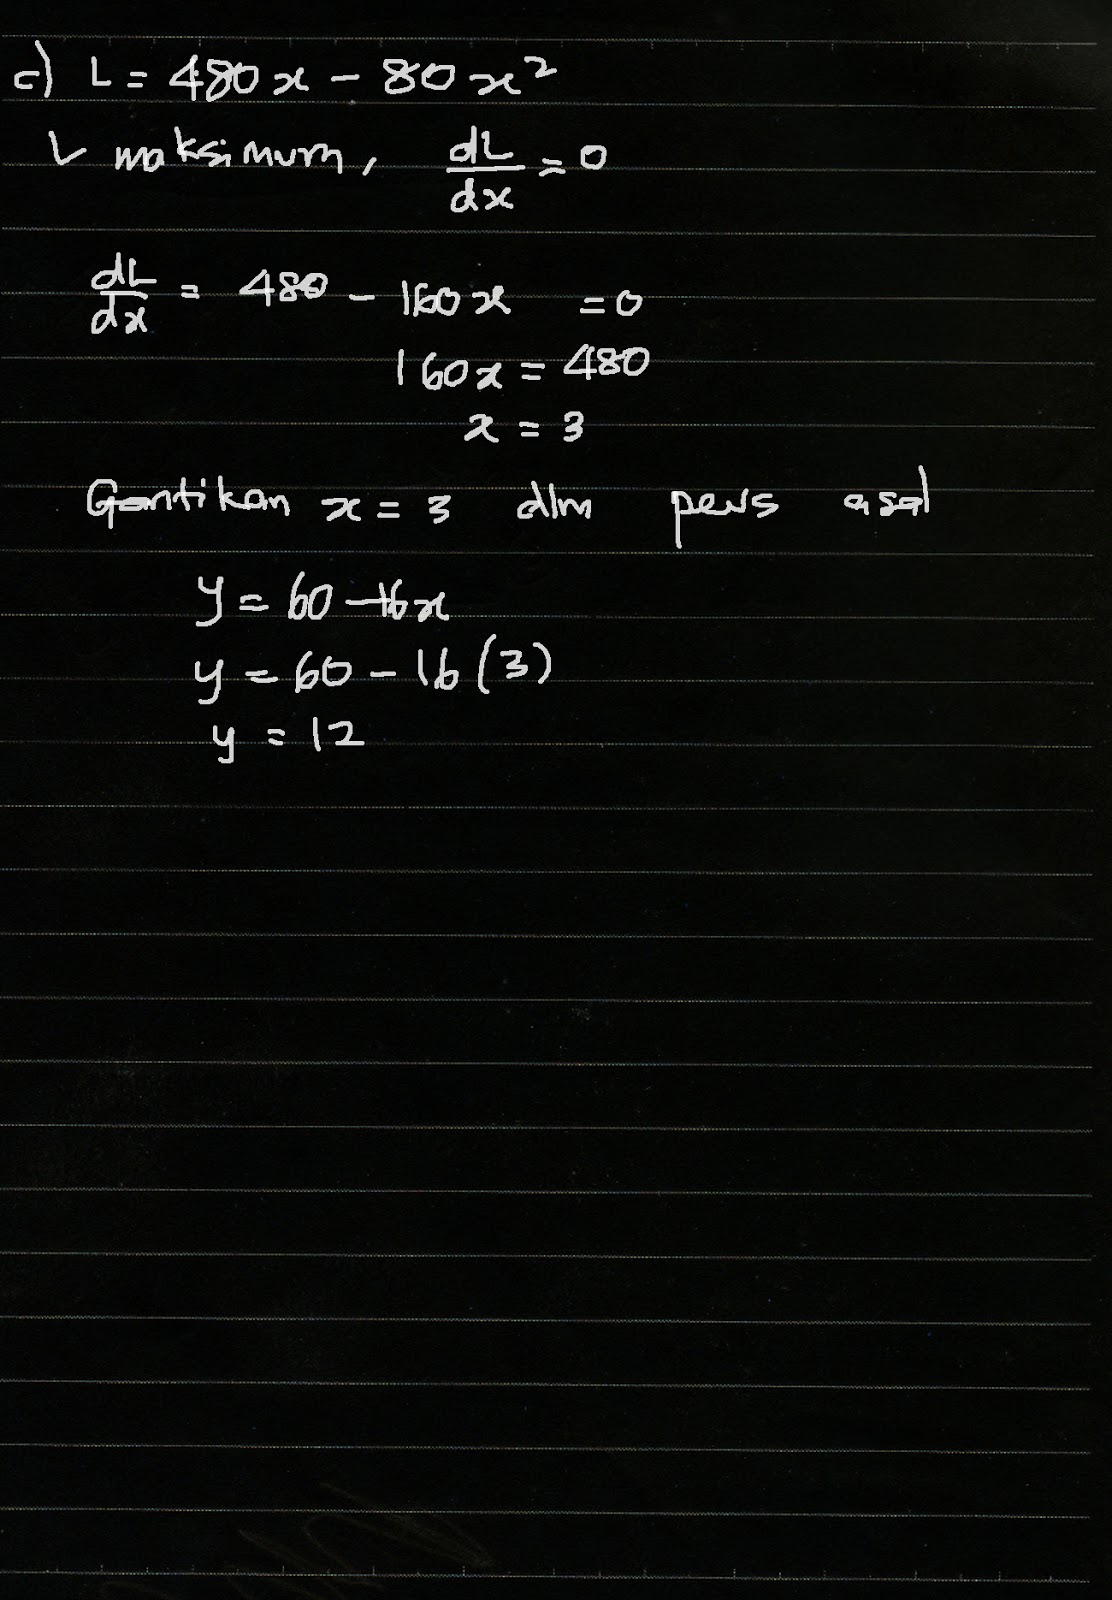 c) L = 480x - 80x²
L maksimum, dL/dx = 0
dL/dx = 480 - 160x = 0
160x = 480
x = 3
Gantikan x = 3 dlm pers asal
y = 60 - 16x
y = 60 - 16(3)
y = 12